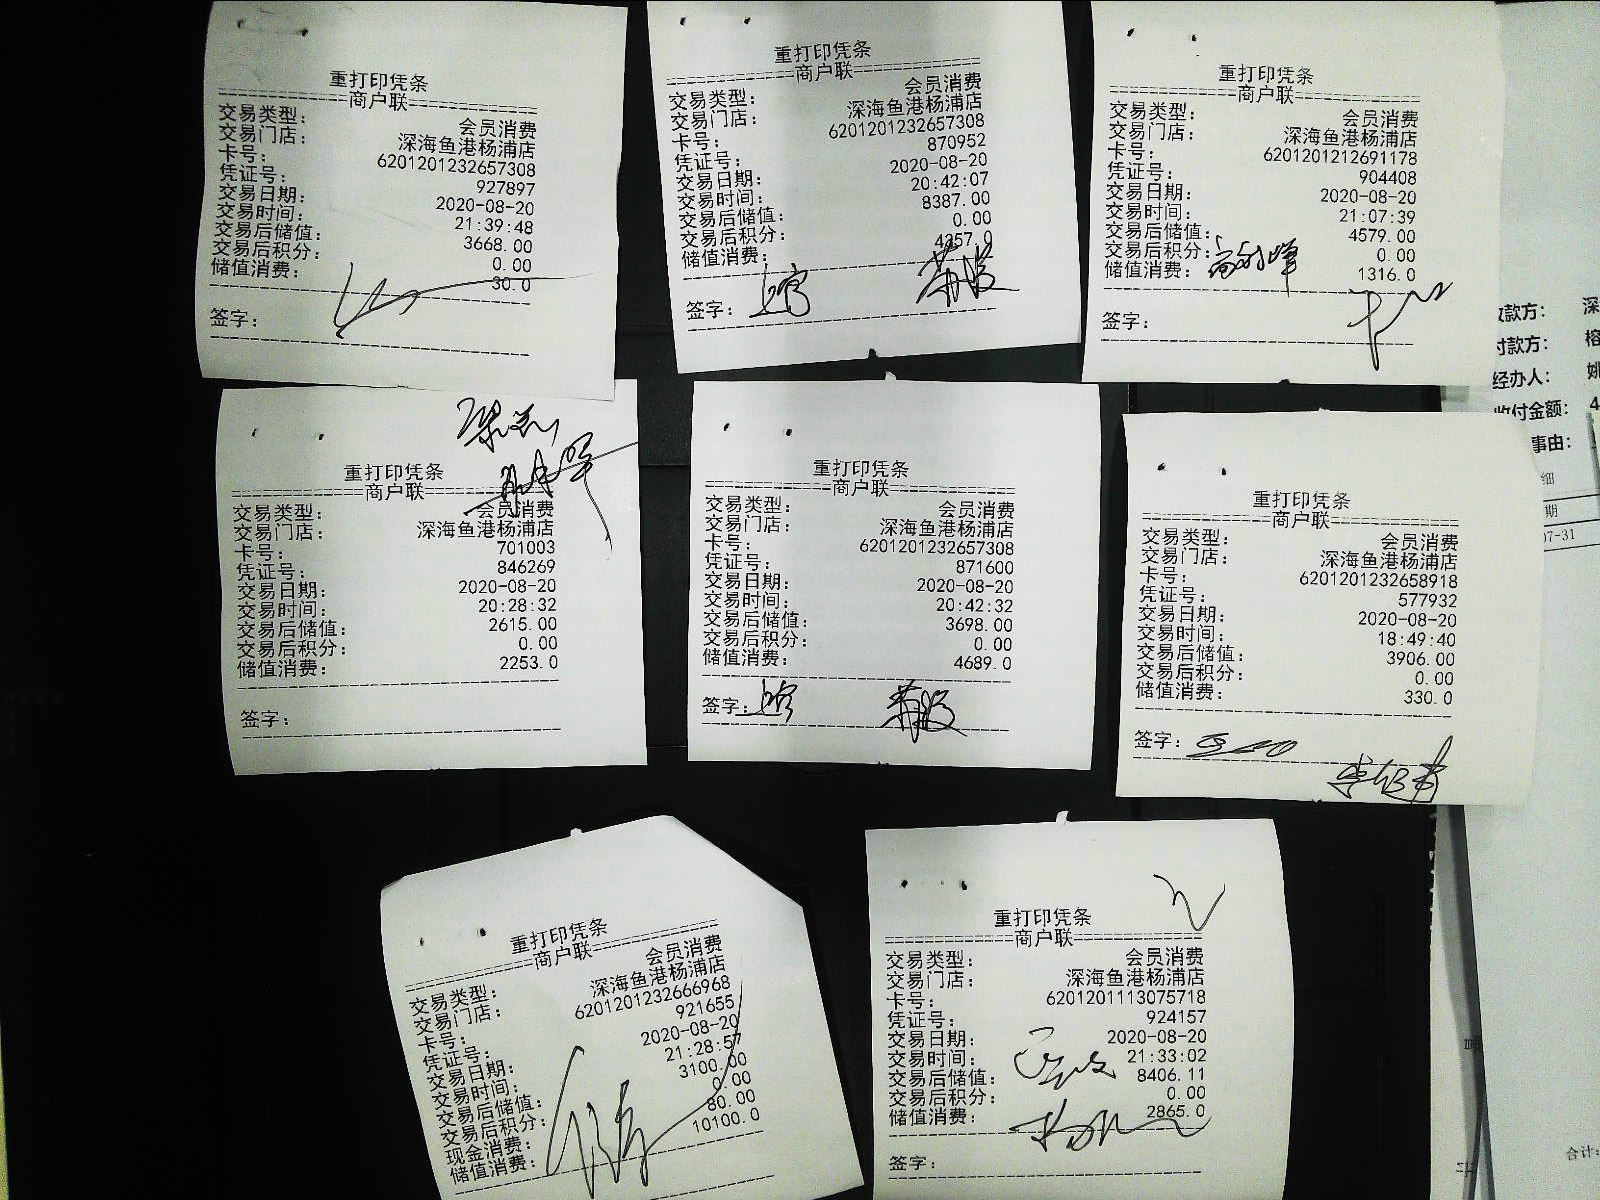 重打印凭条
商户联
交易类型: 会员消费
交易门店: 深海鱼港杨浦店
卡号: 6201201232657308
凭证号: 927897
交易日期: 2020-08-20
交易时间: 21:39:48
交易后储值: 3668.00
交易后积分: 0.00
储值消费: 30.0
签字:
重打印凭条
商户联
交易类型: 会员消费
交易门店: 深海鱼港杨浦店
卡号: 6201201232657308
凭证号: 870952
交易日期: 2020-08-20
交易时间: 20:42:07
交易后储值: 8387.00
交易后积分: 0.00
储值消费: 4357.0
签字:
重打印凭条
商户联
交易类型: 会员消费
交易门店: 深海鱼港杨浦店
卡号: 6201201212691178
凭证号: 904408
交易日期: 2020-08-20
交易时间: 21:07:39
交易后储值: 4579.00
交易后积分: 0.00
储值消费: 1316.0
签字:
重打印凭条
商户联
交易类型: 会员消费
交易门店: 深海鱼港杨浦店
卡号: 701003
凭证号: 846269
交易日期: 2020-08-20
交易时间: 20:28:32
交易后储值: 2615.00
交易后积分: 0.00
储值消费: 2253.0
签字:
重打印凭条
商户联
交易类型: 会员消费
交易门店: 深海鱼港杨浦店
卡号: 6201201232657308
凭证号: 871600
交易日期: 2020-08-20
交易时间: 20:42:32
交易后储值: 3698.00
交易后积分: 0.00
储值消费: 4689.0
签字:
重打印凭条
商户联
交易类型: 会员消费
交易门店: 深海鱼港杨浦店
卡号: 6201201232658918
凭证号: 577932
交易日期: 2020-08-20
交易时间: 18:49:40
交易后储值: 3906.00
交易后积分: 0.00
储值消费: 330.0
签字:
重打印凭条
商户联
交易类型: 会员消费
交易门店: 深海鱼港杨浦店
卡号: 6201201232666968
凭证号: 921655
交易日期: 2020-08-20
交易时间: 21:28:57
交易后储值: 3100.00
交易后积分: 0.00
现金消费: 80.00
储值消费: 10100.0
重打印凭条
商户联
交易类型: 会员消费
交易门店: 深海鱼港杨浦店
卡号: 6201201113075718
凭证号: 924157
交易日期: 2020-08-20
交易时间: 21:33:02
交易后储值: 8406.11
交易后积分: 0.00
储值消费: 2865.0
签字:
款方: 深
付款方: 榕
经办人: 姚
收付金额: 4
事由:
细
期
07-31
合计: